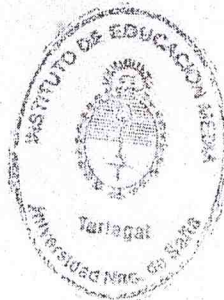 INSTITUTO DE EDUCACIÓN MEDIA
Tartagal
Universidad Nac. de Salta